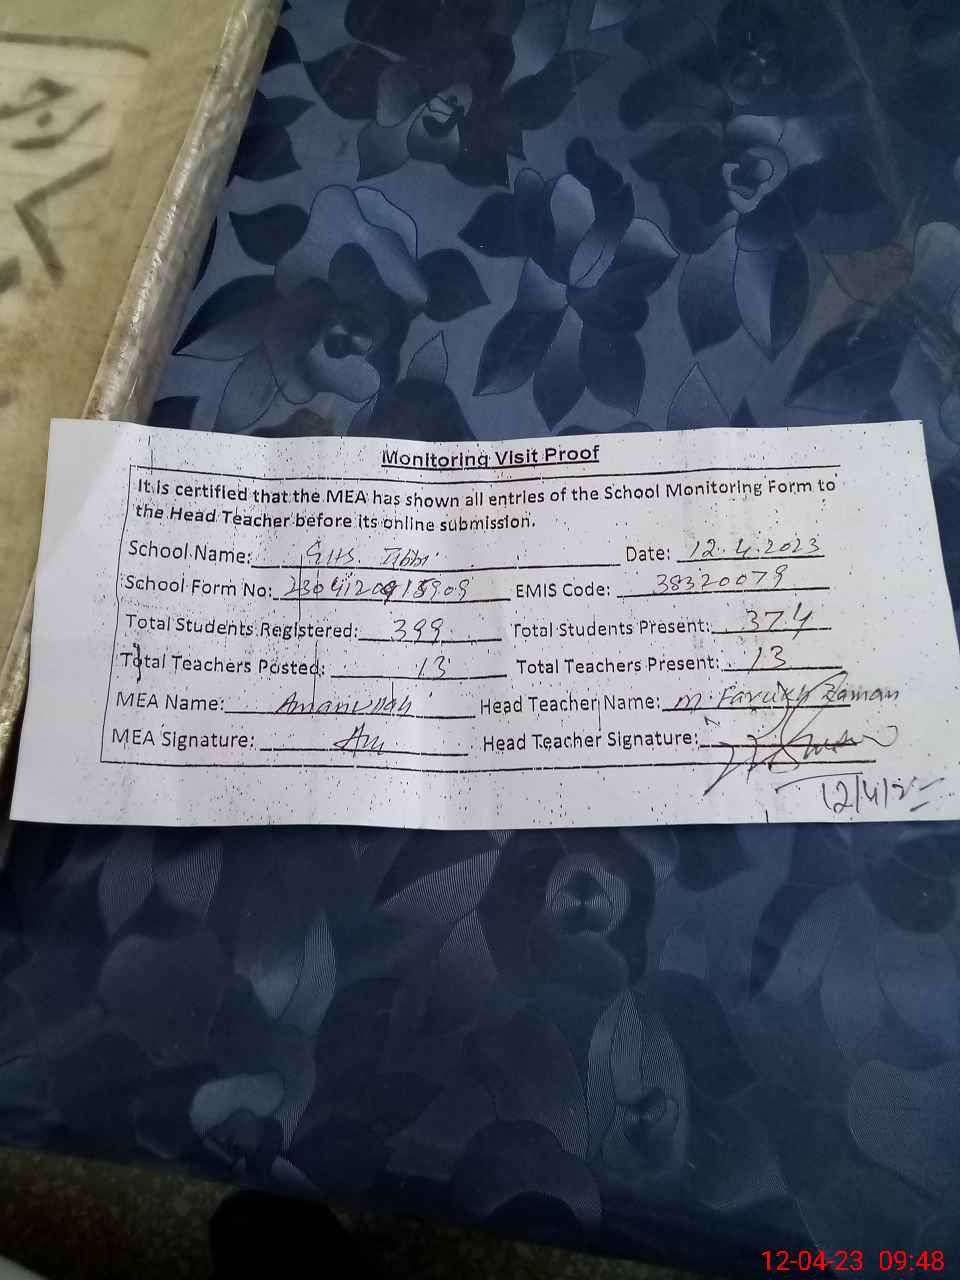 Monitoring Visit Proof
It is certified that the MEA has shown all entries of the School Monitoring Form to
the Head Teacher before its online submission.
School Name: GHS. Tibbi Date: 12.4.2023
School Form No: EMIS Code: 38320079
Total Students Registered: 399 Total Students Present: 374
Total Teachers Posted: 13 Total Teachers Present: 13
MEA Name: Amanullah Head Teacher Name: M. Farukh Zaman
MEA Signature: Head Teacher Signature:
12-04-23 09:48